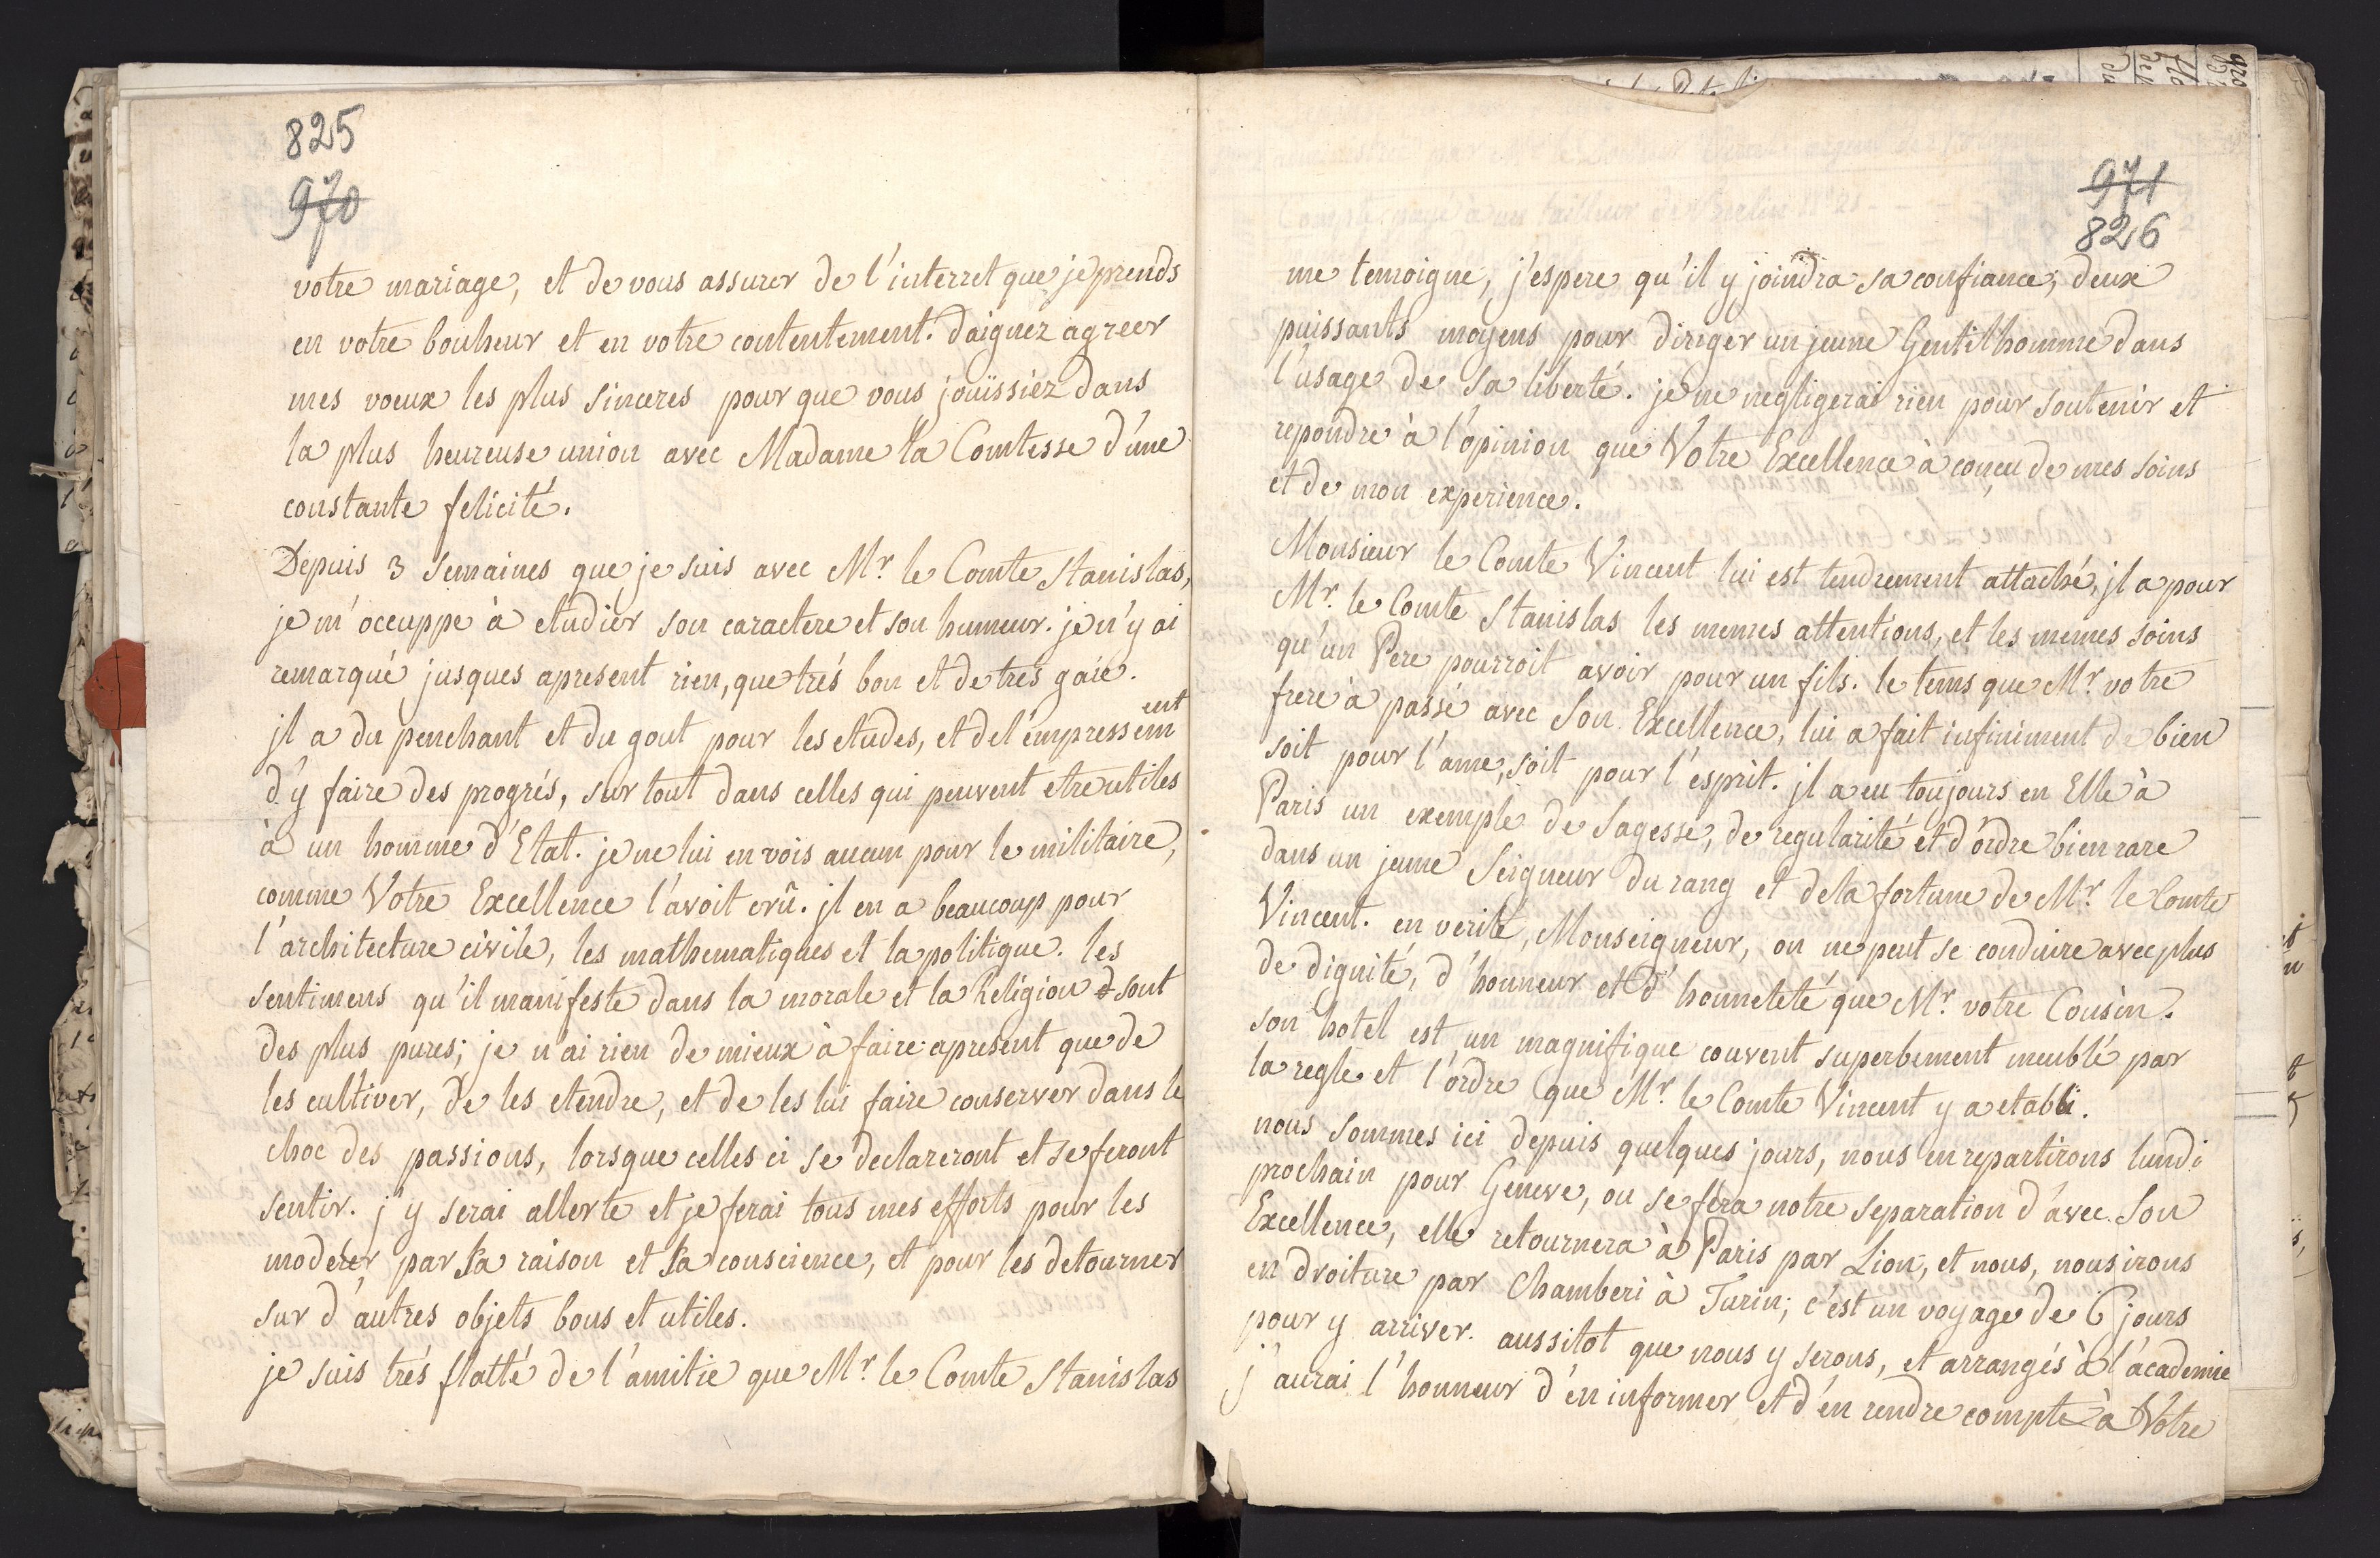 825
970
votre mariage, et de vous assurer de l'interret que je prends
en votre bonheur et en votre contentement. Daignez agreer
mes voeux les plus sinceres pour que vous jouïssiez dans
la plus heureuse union avec Madame la Comtesse d'une
constante felicité.
Depuis 3 semaines que je suis avec Mr. le Comte Stanislas,
je m'occuppe à etudier son caractere et son humeur. je n'y ai
remarqué jusques apresent rien, que trés bon et de tres gaie.
jl a du penchant et du gout pour les etudes, et de l'empressement
d'y faire des progrés, sur tout dans celles qui peuvent etre utiles
à un homme d'Etat. je ne lui en vois aucun pour le militaire,
comme Votre Excellence l'avoit crû. jl en a beaucoup pour
l'architecture civile, les mathematiques et la politique. les
sentimens qu'il manifeste dans la morale et la Religion sont
des plus pures; je n'ai rien de mieux à faire apresent que de
les cultiver, de les etendre, et de les lui faire conserver dans le
choc des passions, lorsque celles ci se declareront et se feront
sentir. j'y serai allerte et je ferai tous mes efforts pour les
moderer par sa raison et sa conscience, et pour les detourner
sur d'autres objets bons et utiles.
je suis trés flatté de l'amitie que Mr. le Comte Stanislas
971
826
me temoigne, j'espere qu'il y joindra sa confiance, deux
puissants moyens pour diriger un jeune Gentilhomme dans
l'usage de sa liberté. je ne negligerai rien pour soutenir et
repondre à l'opinion que Votre Excellence à conçu de mes soins
et de mon experience.
Monsieur le Comte Vincent lui est tendrement attaché, jl a pour
Mr. le Comte Stanislas les memes attentions, et les memes soins
qu'un Pere pourroit avoir pour un fils. le tems que Mr. votre
frere à passé avec Son Excellence, lui a fait infiniment de bien
soit pour l'ame, soit pour l'esprit. jl a eu toujours en Elle à
Paris un exemple de sagesse, de regularité et d'ordre bien rare
dans un jeune Seigneur du rang et de la fortune de Mr. le Comte
Vincent. en verité, Monseigneur, on ne peut se conduire avec plus
de dignité, d'honneur et d'honneteté que Mr. votre Cousin.
son hotel est un magnifique couvent superbement meublé par
la regle et l'ordre que Mr. le Comte Vincent y a etabli.
nous sommes ici depuis quelques jours, nous en repartirons lundi
prochain pour Geneve, ou se fera notre separation d'avec Son
Excellence, elle retournera à Paris par Lion, et nous, nous irons
en droiture par Chamberi à Turin; c'est un voyage de 6 jours
pour y arriver. aussitot que nous y serons, et arrangés à l'academie
j'aurai l'honneur d'en informer et d'en rendre compte à Votre